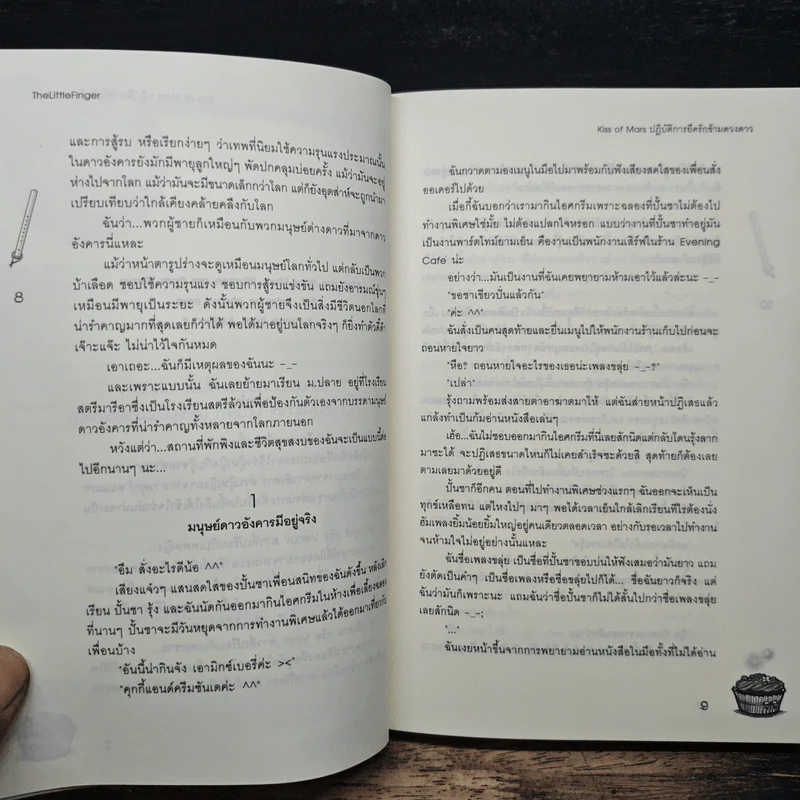 TheLittleFinger
และการสู้รบ หรือเรียกง่ายๆ ว่าเทพที่นิยมใช้ความรุนแรงประมาณนั้น
ในดาวอังคารยังมักมีพายุลูกใหญ่ๆ พัดปกคลุมบ่อยครั้ง แม้ว่ามันจะอยู่
ห่างไปจากโลก แม้ว่ามันจะมีขนาดเล็กกว่าโลก แต่ก็ยังอุตส่าห์จะถูกนำมา
เปรียบเทียบว่าใกล้เคียงคล้ายคลึงกับโลก
ฉันว่า...พวกผู้ชายก็เหมือนกับพวกมนุษย์ต่างดาวที่มาจากดาว
อังคารนี่แหละ
แม้ว่าหน้าตารูปร่างจะดูเหมือนมนุษย์โลกทั่วไป แต่กลับเป็นพวก
บ้าเลือด ชอบใช้ความรุนแรง ชอบการสู้รบแข่งขัน แถมยังอารมณ์รุนๆ
เหมือนมีพายุเป็นระยะ ดังนั้นพวกผู้ชายจึงเป็นสิ่งมีชีวิตนอกโลกที่
น่ารำคาญมากที่สุดเลยก็ว่าได้ พอได้มาอยู่บนโลกจริงๆ ก็ยิ่งทำตัวดี๊ด๊า
เจ๊าะแจ๊ะ ไม่น่าไว้ใจกันหมด
เอาเถอะ...ฉันก็มีเหตุผลของฉันนะ -_-
และเพราะแบบนั้น ฉันเลยย้ายมาเรียน ม.ปลาย อยู่ที่โรงเรียน
สตรีมารีอาซึ่งเป็นโรงเรียนสตรีล้วนเพื่อป้องกันตัวเองจากบรรดามนุษย์
ดาวอังคารที่น่ารำคาญทั้งหลายจากโลกภายนอก
หวังแต่ว่า...สถานที่พักพิงและชีวิตสุขสงบของฉันจะเป็นแบบนี้ต่อ
ไปอีกนานๆ นะ...
8
1
มนุษย์ดาวอังคารมีอยู่จริง
"อืม สั่งอะไรดีน้อ ^^"
เสียงแจ๋วๆ แสนสดใสของปั้นชาเพื่อนสนิทของฉันดังขึ้น หลังเลิก
เรียน ปั้นชา รุ้ง และฉันนัดกันออกมากินไอศกรีมในห้างเพื่อเลี้ยงฉลอง
ที่นานๆ ปั้นชาจะมีวันหยุดจากการทำงานพิเศษแล้วได้ออกมาเที่ยวกับ
เพื่อนบ้าง
"อันนี้น่ากินจัง เอามิกซ์เบอรี่ค่ะ ><"
"คุกกี้แอนด์ครีมซันเดค่ะ ^^"
Kiss of Mars ปฏิบัติการยึดรักข้ามดวงดาว
ฉันกวาดตามองเมนูในมือไปมาพร้อมกับฟังเสียงสดใสของเพื่อนสั่ง
ออเดอร์ไปด้วย
เมื่อกี้ฉันบอกว่าเรามากินไอศกรีมเพราะฉลองที่ปั้นชาไม่ต้องไป
ทำงานพิเศษใช่มั้ย ไม่ต้องแปลกใจหรอก แบบว่างานที่ปั้นชาทำอยู่มัน
เป็นงานพาร์ตไทม์ยามเย็น คืองานเป็นพนักงานเสิร์ฟในร้าน Evening
Cafe' น่ะ
อย่างว่า...มันเป็นงานที่ฉันเคยพยายามห้ามเอาไว้แล้วล่ะนะ -_-
"ขอชาเขียวปั่นแล้วกัน"
"ค่ะ ^^"
ฉันสั่งเป็นคนสุดท้ายและยื่นเมนูไปให้พนักงานร้านเก็บไปก่อนจะ
ถอนหายใจยาว
"หือ? ถอนหายใจอะไรของเธอน่ะเพลงขลุ่ย -_-?"
"เปล่า"
รุ้งถามพร้อมส่งสายตาอาฆาตมาให้ แต่ฉันส่ายหน้าปฏิเสธแล้ว
แกล้งทำเป็นก้มอ่านหนังสือเล่นๆ
เฮ้อ...ฉันไม่ชอบออกมากินไอศกรีมที่นี่เลยสักนิดแต่กลับโดนรุ้งลาก
มาซะได้ จะปฏิเสธขนาดไหนก็ไม่เคยสำเร็จซะด้วยสิ สุดท้ายก็ต้องเลย
ตามเลยมาด้วยอยู่ดี
ปั้นชาก็อีกคน ตอนที่ไปทำงานพิเศษช่วงแรกๆ ฉันออกจะเห็นเป็น
ทุกข์เหลือทน แต่ไหงไปๆ มาๆ พอได้เวลาเย็นใกล้เลิกเรียนทีไรต้องนั่ง
ฮัมเพลงยิ้มน้อยยิ้มใหญ่อยู่คนเดียวตลอดเวลา อย่างกับรอเวลาไปทำงาน
จนห้ามใจไม่อยู่อย่างนั้นแหละ
ฉันชื่อเพลงขลุ่ย เป็นชื่อที่ปั้นชาชอบบ่นให้ฟังเสมอว่ามันยาว แถม
ยังตัดเป็นคำๆ เป็นชื่อเพลงหรือชื่อขลุ่ยไปก็ได้... ชื่อฉันยาวก็จริง แต่
ฉันว่ามันก็เพราะนะ แถมฉันว่าชื่อปั้นชาก็ไม่ได้สั้นไปกว่าชื่อเพลงขลุ่ย
เลยสักนิด -_-;
"..."
ฉันเงยหน้าขึ้นจากการพยายามอ่านหนังสือในมือทั้งที่ไม่ได้อ่าน
9